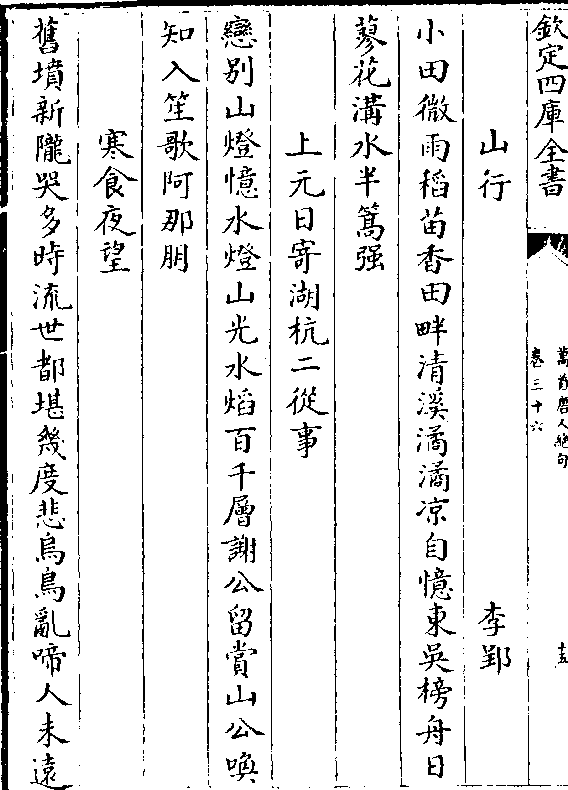 欽定四庫全書
萬首唐人絶句
卷三十六
十五
山行 李郢
小田微雨稻苗香田畔清溪潏潏凉自憶東吳榜舟日
蓼花溝水半篙强
上元日寄湖杭二從事
戀别山燈憶水燈山光水熖百千層謝公留賞山公喚
知入笙歌阿那朋
寒食夜望
舊墳新隴哭多時流世都堪幾度悲烏鳥亂啼人未遠